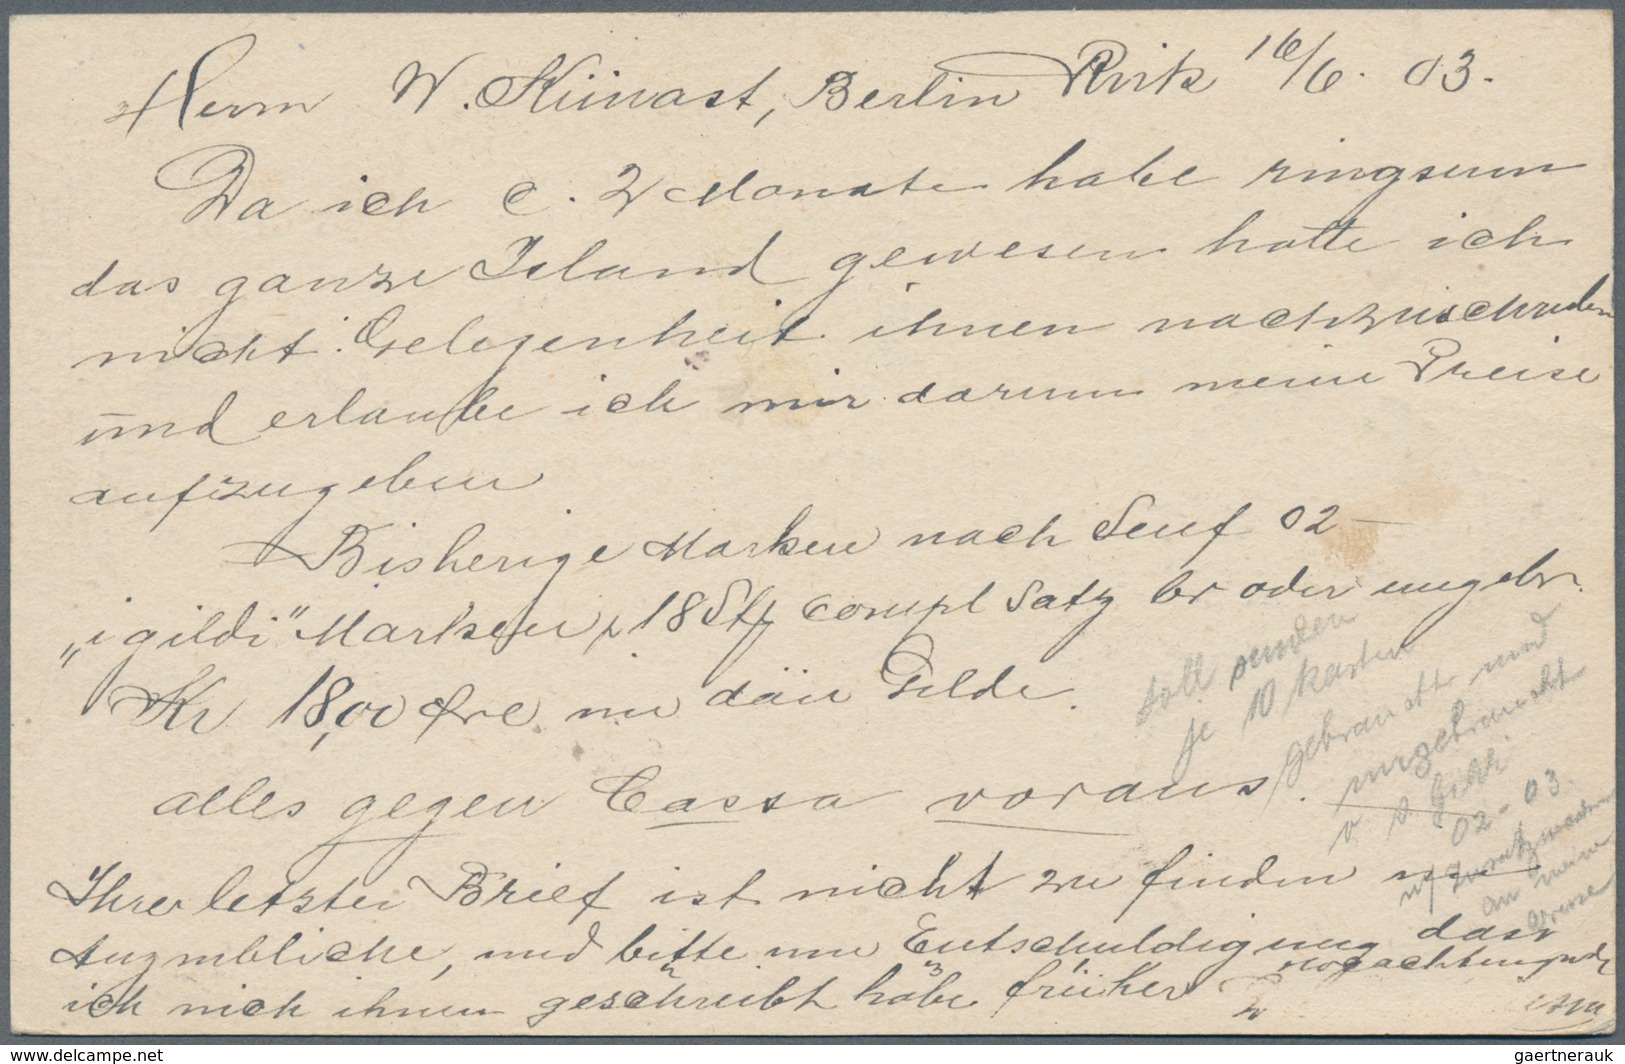 Herrn W. Künast, Berlin Rvik 16/6. 03.
Da ich c. 2 Monate habe ringsum
das ganze Island gewesen hatte ich
nicht Gelegenheit ihnen nachzuschreiben
und erlaube ich mir darum meine Preise
aufzugeben
Bisherige Marken nach Senf 02 —
„i gildi" Marken, 18 Stk compl Satz br oder ungebr.
Kr 18,00 Öre in dän Gelde.
alles gegen Cassa voraus.
Ihrer letzter Brief ist nicht zu finden
Augenblicke, und bitte um Entschuldigung dass
ich nich ihnen geschreibt habe früher
soll senden
je 10 Karten
gebraucht und
ungebraucht
v s. Gildi
02-03.
an meine
Adresse
gaertnerauk